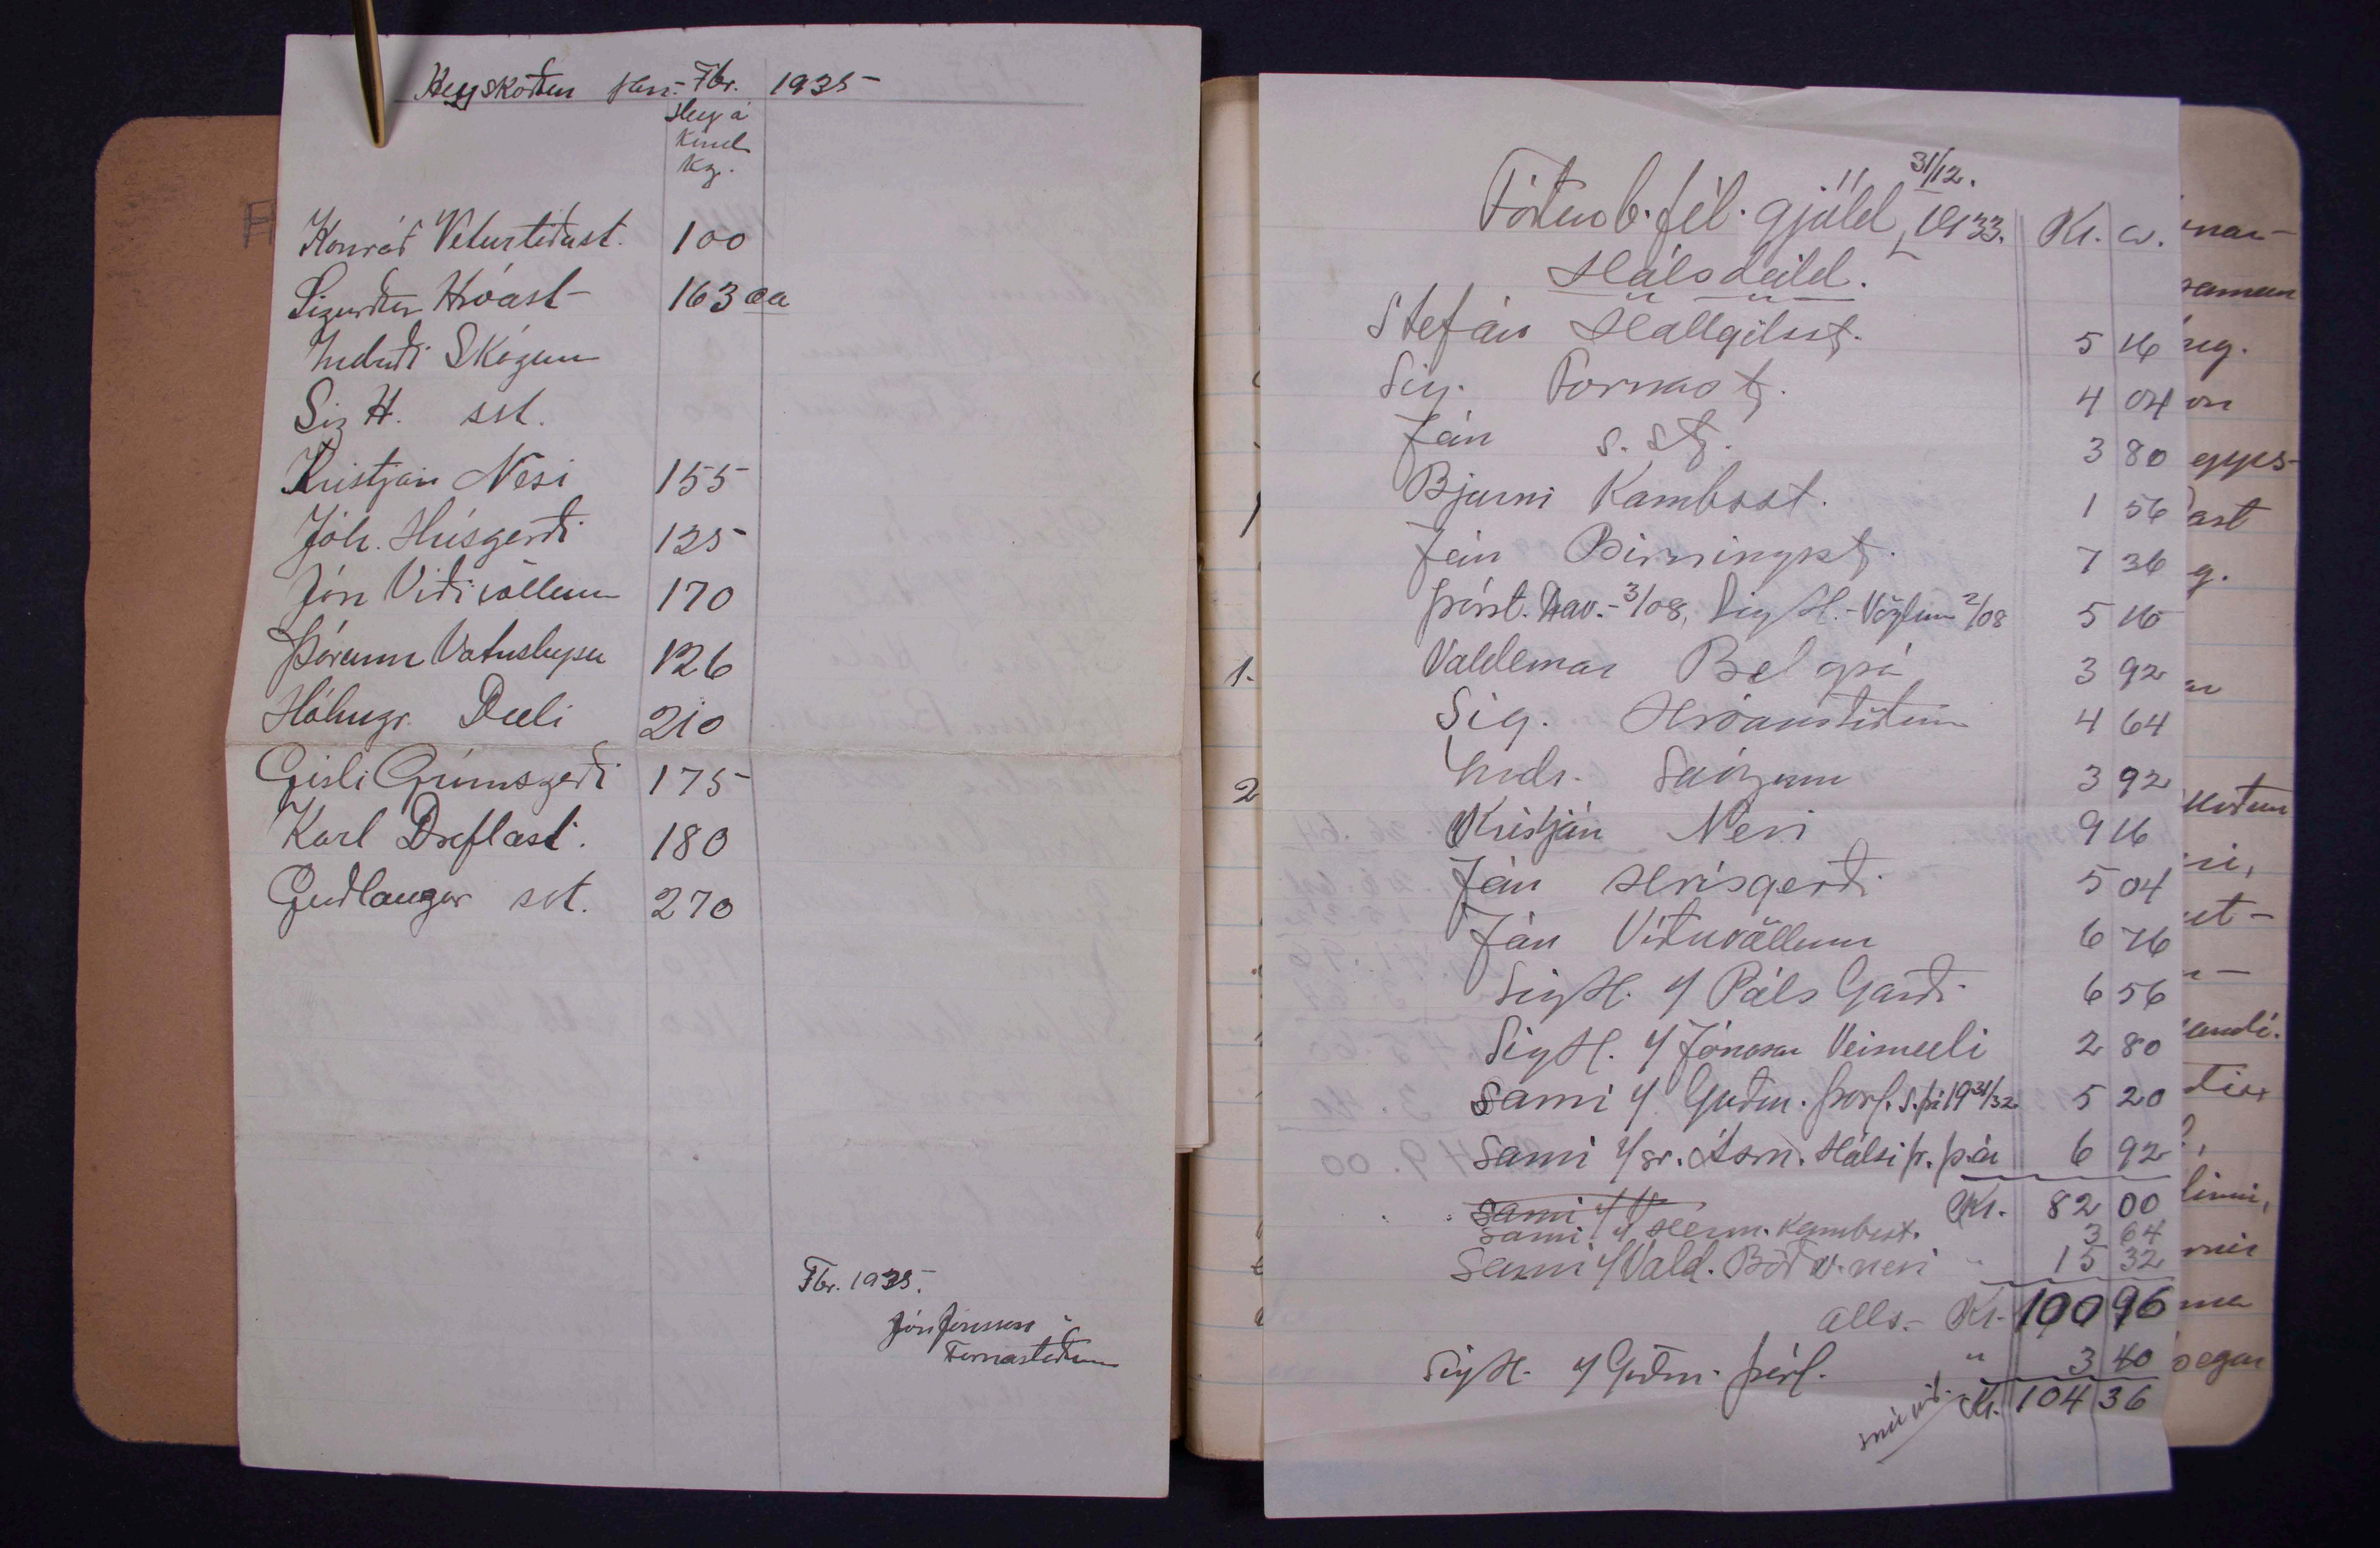 Heyskoðun Jan.-Fbr. 1935
Hey á
Kind
Kg.
Konráð Veturliðast. 100
Sigurður Hróast 163 ca
Indriði Skógum
Sig H. sst.
Kristján Nesi 155
Jóh. Hrísgerði 125
Jón Víðivöllum 170
Þórunn Vatnsleysu 126
Hólmgr. Dæli 210
Gísli Grímsgerði 175
Karl Dræflast. 180
Guðlaugur sst. 270
Fbr. 1935.
Jón Jónsson
Fornastöðum
31/12.
Fóðurb.fél. gjöld 1933. Kr. a.
Hálsdeild.
Stefán Hallgilsst. 5 16
Sig. Fornast. 4 04
Jón s. st. 3 80
Bjarni Kambsst. 1 56
Jón Birningsst. 7 36
Þórst. Dav.-3/08, Sig H.-Vöglum 2/08 5 16
Valdemar Belgsá 3 92
Sig. Hróarsstöðum 4 64
Indr. Skógum 3 92
Kristján Nesi 9 16
Jón Hrísgerði 5 04
Jón Víðivöllum 6 76
Sig H. f/ Páls Garði 6 56
Sig H. f/ Jónasar Veisuseli 2 80
Sami f/ Guðm. Þorf. 1931/32 5 20
Sami f/ sr. Ásm. Hálsi fr. þ.ár 6 92
Sami f/ Kr. 82 00
Sami f/ Herm. Kambsst. 3 64
Sami f/ Vald. Böðv.nesi " 15 32
alls.- Kr. 100 96
Sig H. f/ Guðm. Þorf. " 3 40
snú við. Kr. 104 36